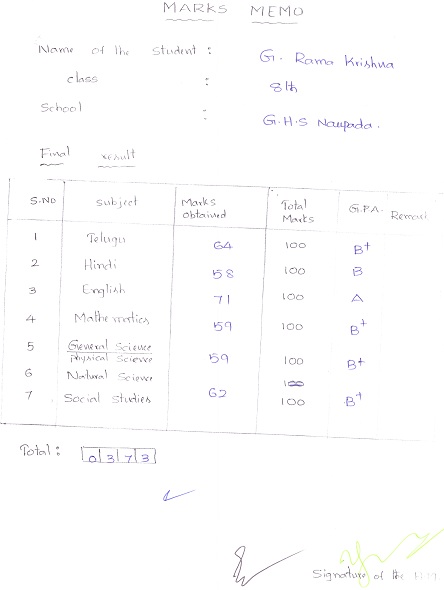 MARKS MEMO
Name of the Student : G. Rama Krishna
class : 8th
School : G.H.S Naupada.
Final result
S.NO Subject Marks obtained Total Marks G.P.A. Remark
1 Telugu 64 100 B+
2 Hindi 58 100 B
3 English 71 100 A
4 Mathematics 59 100 B+
5 General Science
Physical Science 59 100 B+
6 Natural Science 100
7 Social Studies 62 100 B+
Total : 0373
Signature of the H.M